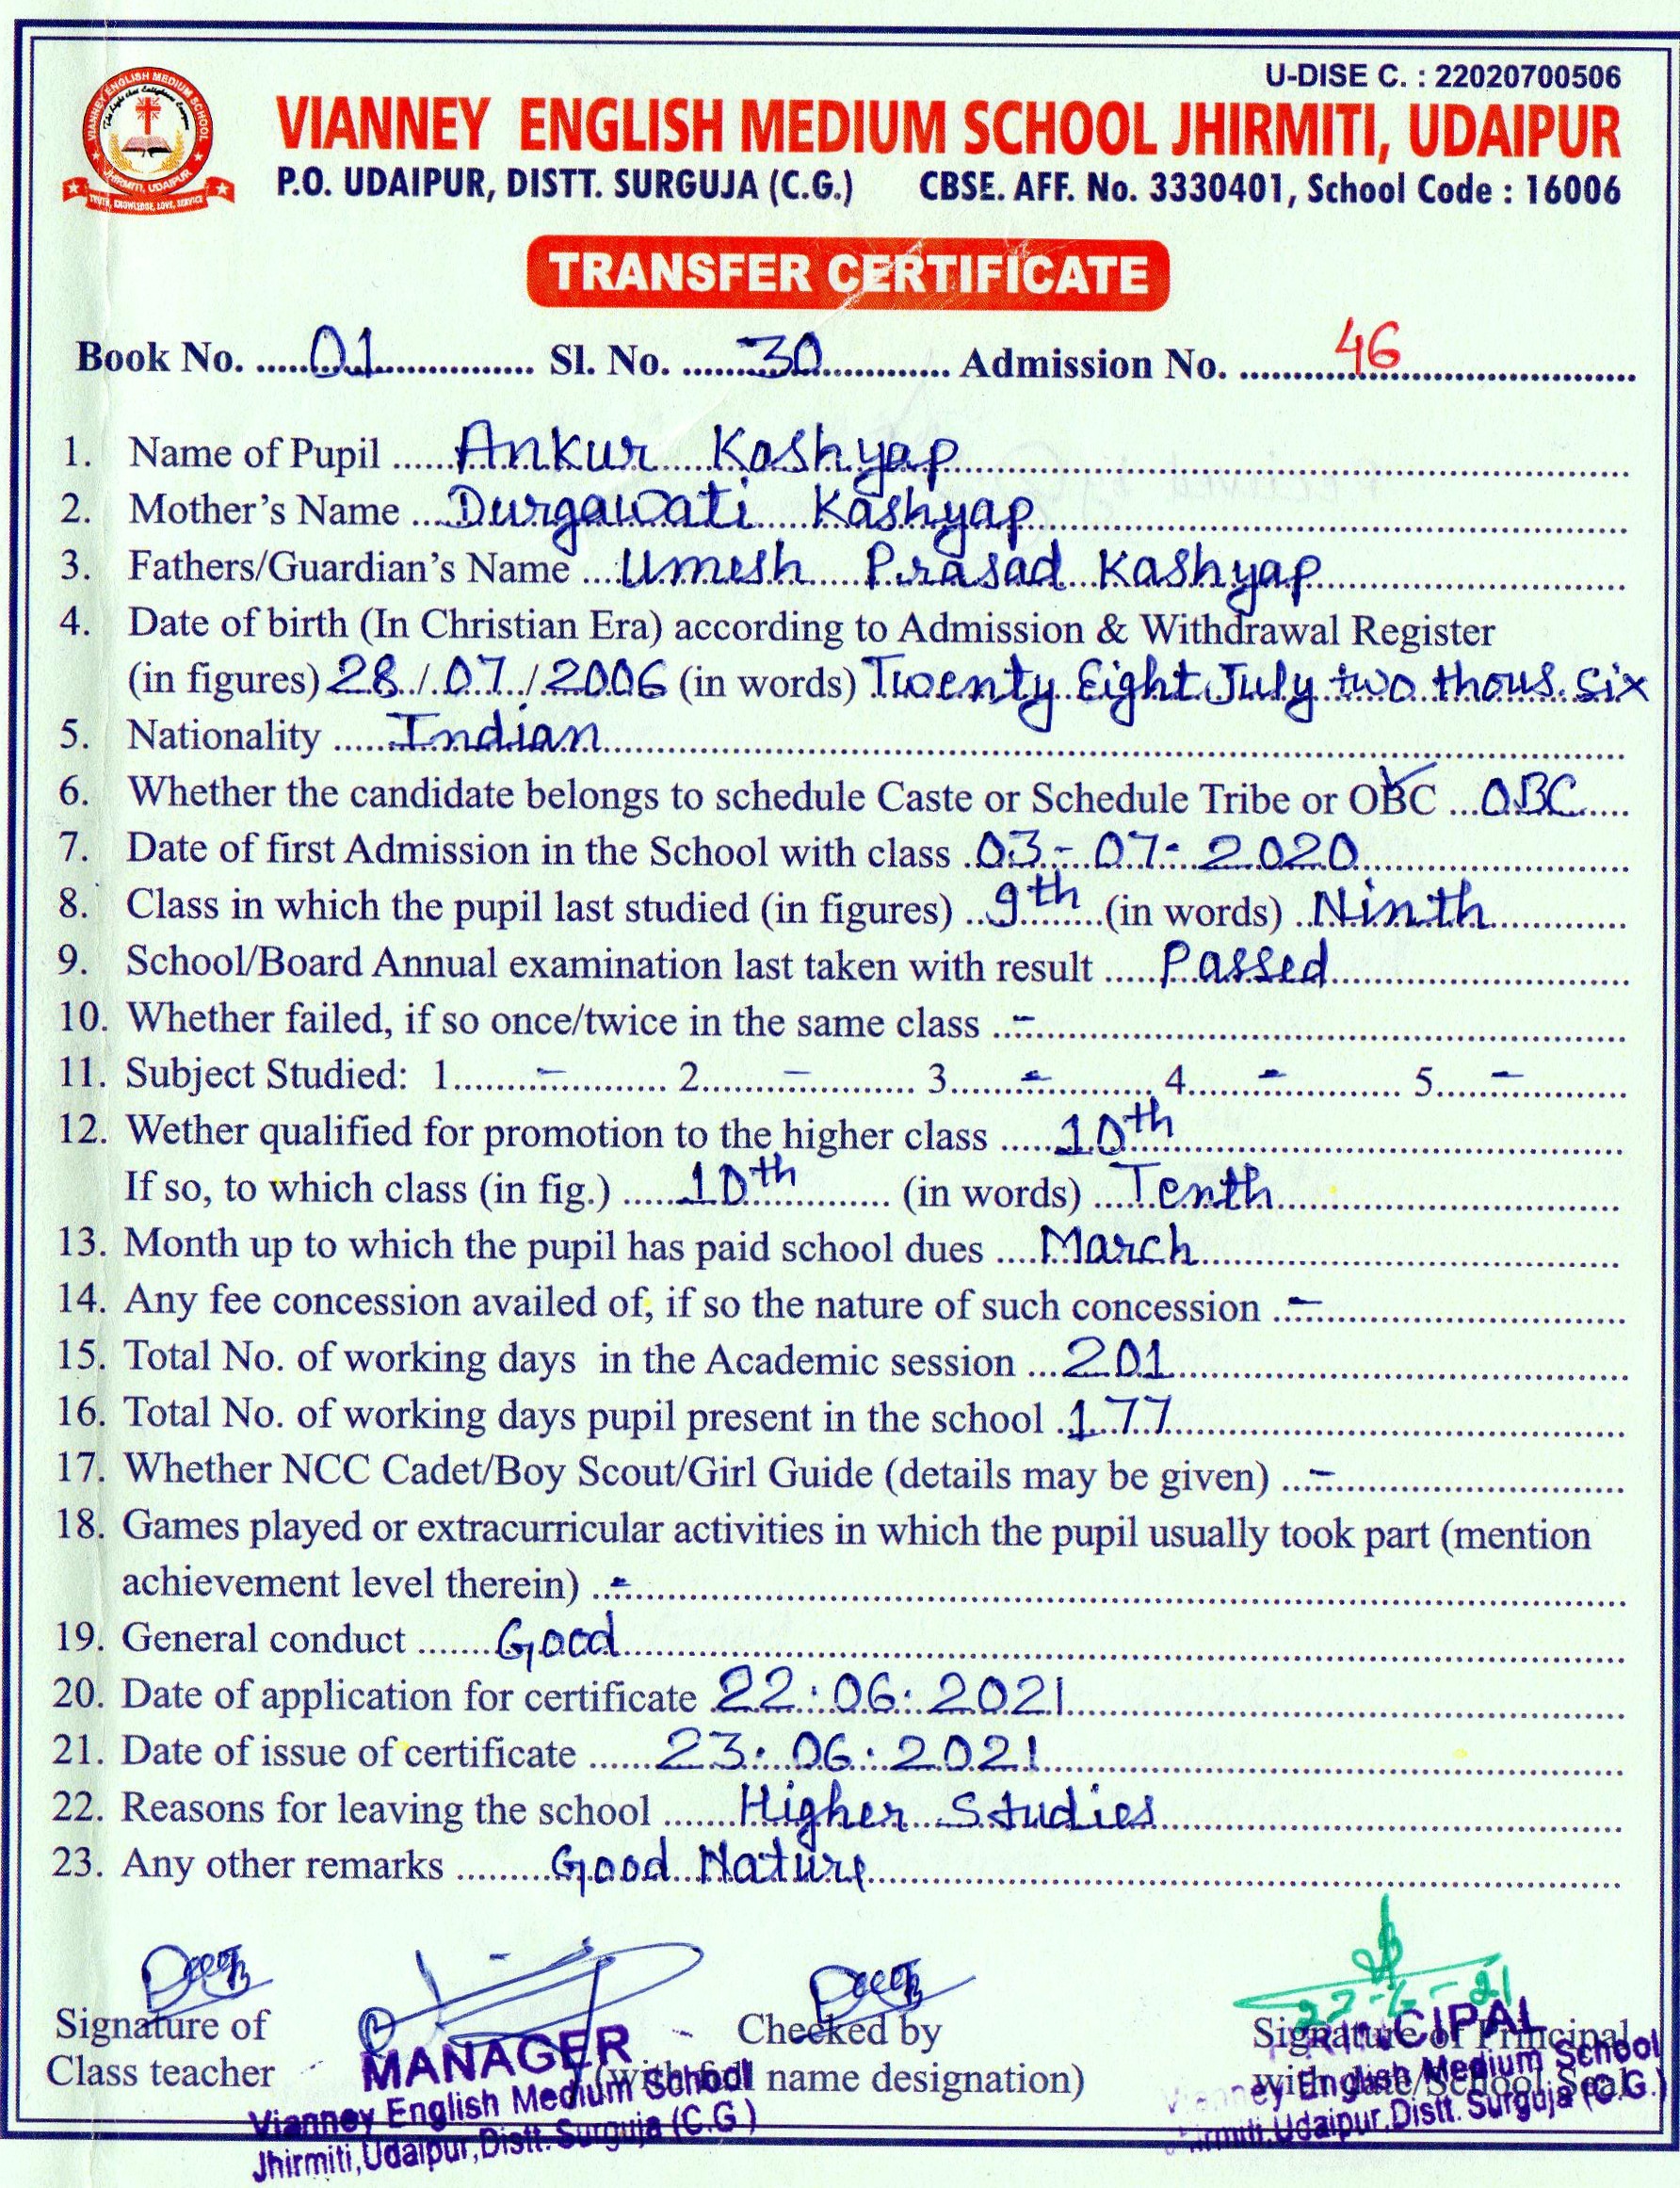 U-DISE C. : 22020700506
VIANNEY ENGLISH MEDIUM SCHOOL
The Light that Enlightens Everyone
JHIRMITI, UDAIPUR
TRUTH, KNOWLEDGE, LOVE, SERVICE
VIANNEY ENGLISH MEDIUM SCHOOL JHIRMITI, UDAIPUR
P.O. UDAIPUR, DISTT. SURGUJA (C.G.) CBSE. AFF. No. 3330401, School Code : 16006
TRANSFER CERTIFICATE
Book No. 01 Sl. No. 30 Admission No. 46
1. Name of Pupil Ankur Kashyap
2. Mother's Name Durgawati Kashyap
3. Fathers/Guardian's Name Umesh Prasad Kashyap
4. Date of birth (In Christian Era) according to Admission & Withdrawal Register
(in figures) 28/07/2006 (in words) Twenty Eight July two thous. six
5. Nationality Indian
6. Whether the candidate belongs to schedule Caste or Schedule Tribe or OBC OBC
7. Date of first Admission in the School with class 03-07-2020
8. Class in which the pupil last studied (in figures) 9th (in words) Ninth
9. School/Board Annual examination last taken with result Passed
10. Whether failed, if so once/twice in the same class -
11. Subject Studied: 1 - 2 - 3 - 4 - 5 -
12. Wether qualified for promotion to the higher class 10th
If so, to which class (in fig.) 10th (in words) Tenth
13. Month up to which the pupil has paid school dues March
14. Any fee concession availed of, if so the nature of such concession -
15. Total No. of working days in the Academic session 201
16. Total No. of working days pupil present in the school 177
17. Whether NCC Cadet/Boy Scout/Girl Guide (details may be given) -
18. Games played or extracurricular activities in which the pupil usually took part (mention
achievement level therein) -
19. General conduct Good
20. Date of application for certificate 22:06:2021
21. Date of issue of certificate 23:06:2021
22. Reasons for leaving the school Higher Studies
23. Any other remarks Good Nature
Signature of Checked by Signature of Principal
Class teacher (with full name designation) with date/School Seal
MANAGER
Vianney English Medium School
Jhirmiti, Udaipur, Distt. Surguja (C.G.)
PRINCIPAL
Vianney English Medium School
Jhirmiti, Udaipur, Distt. Surguja (C.G.)